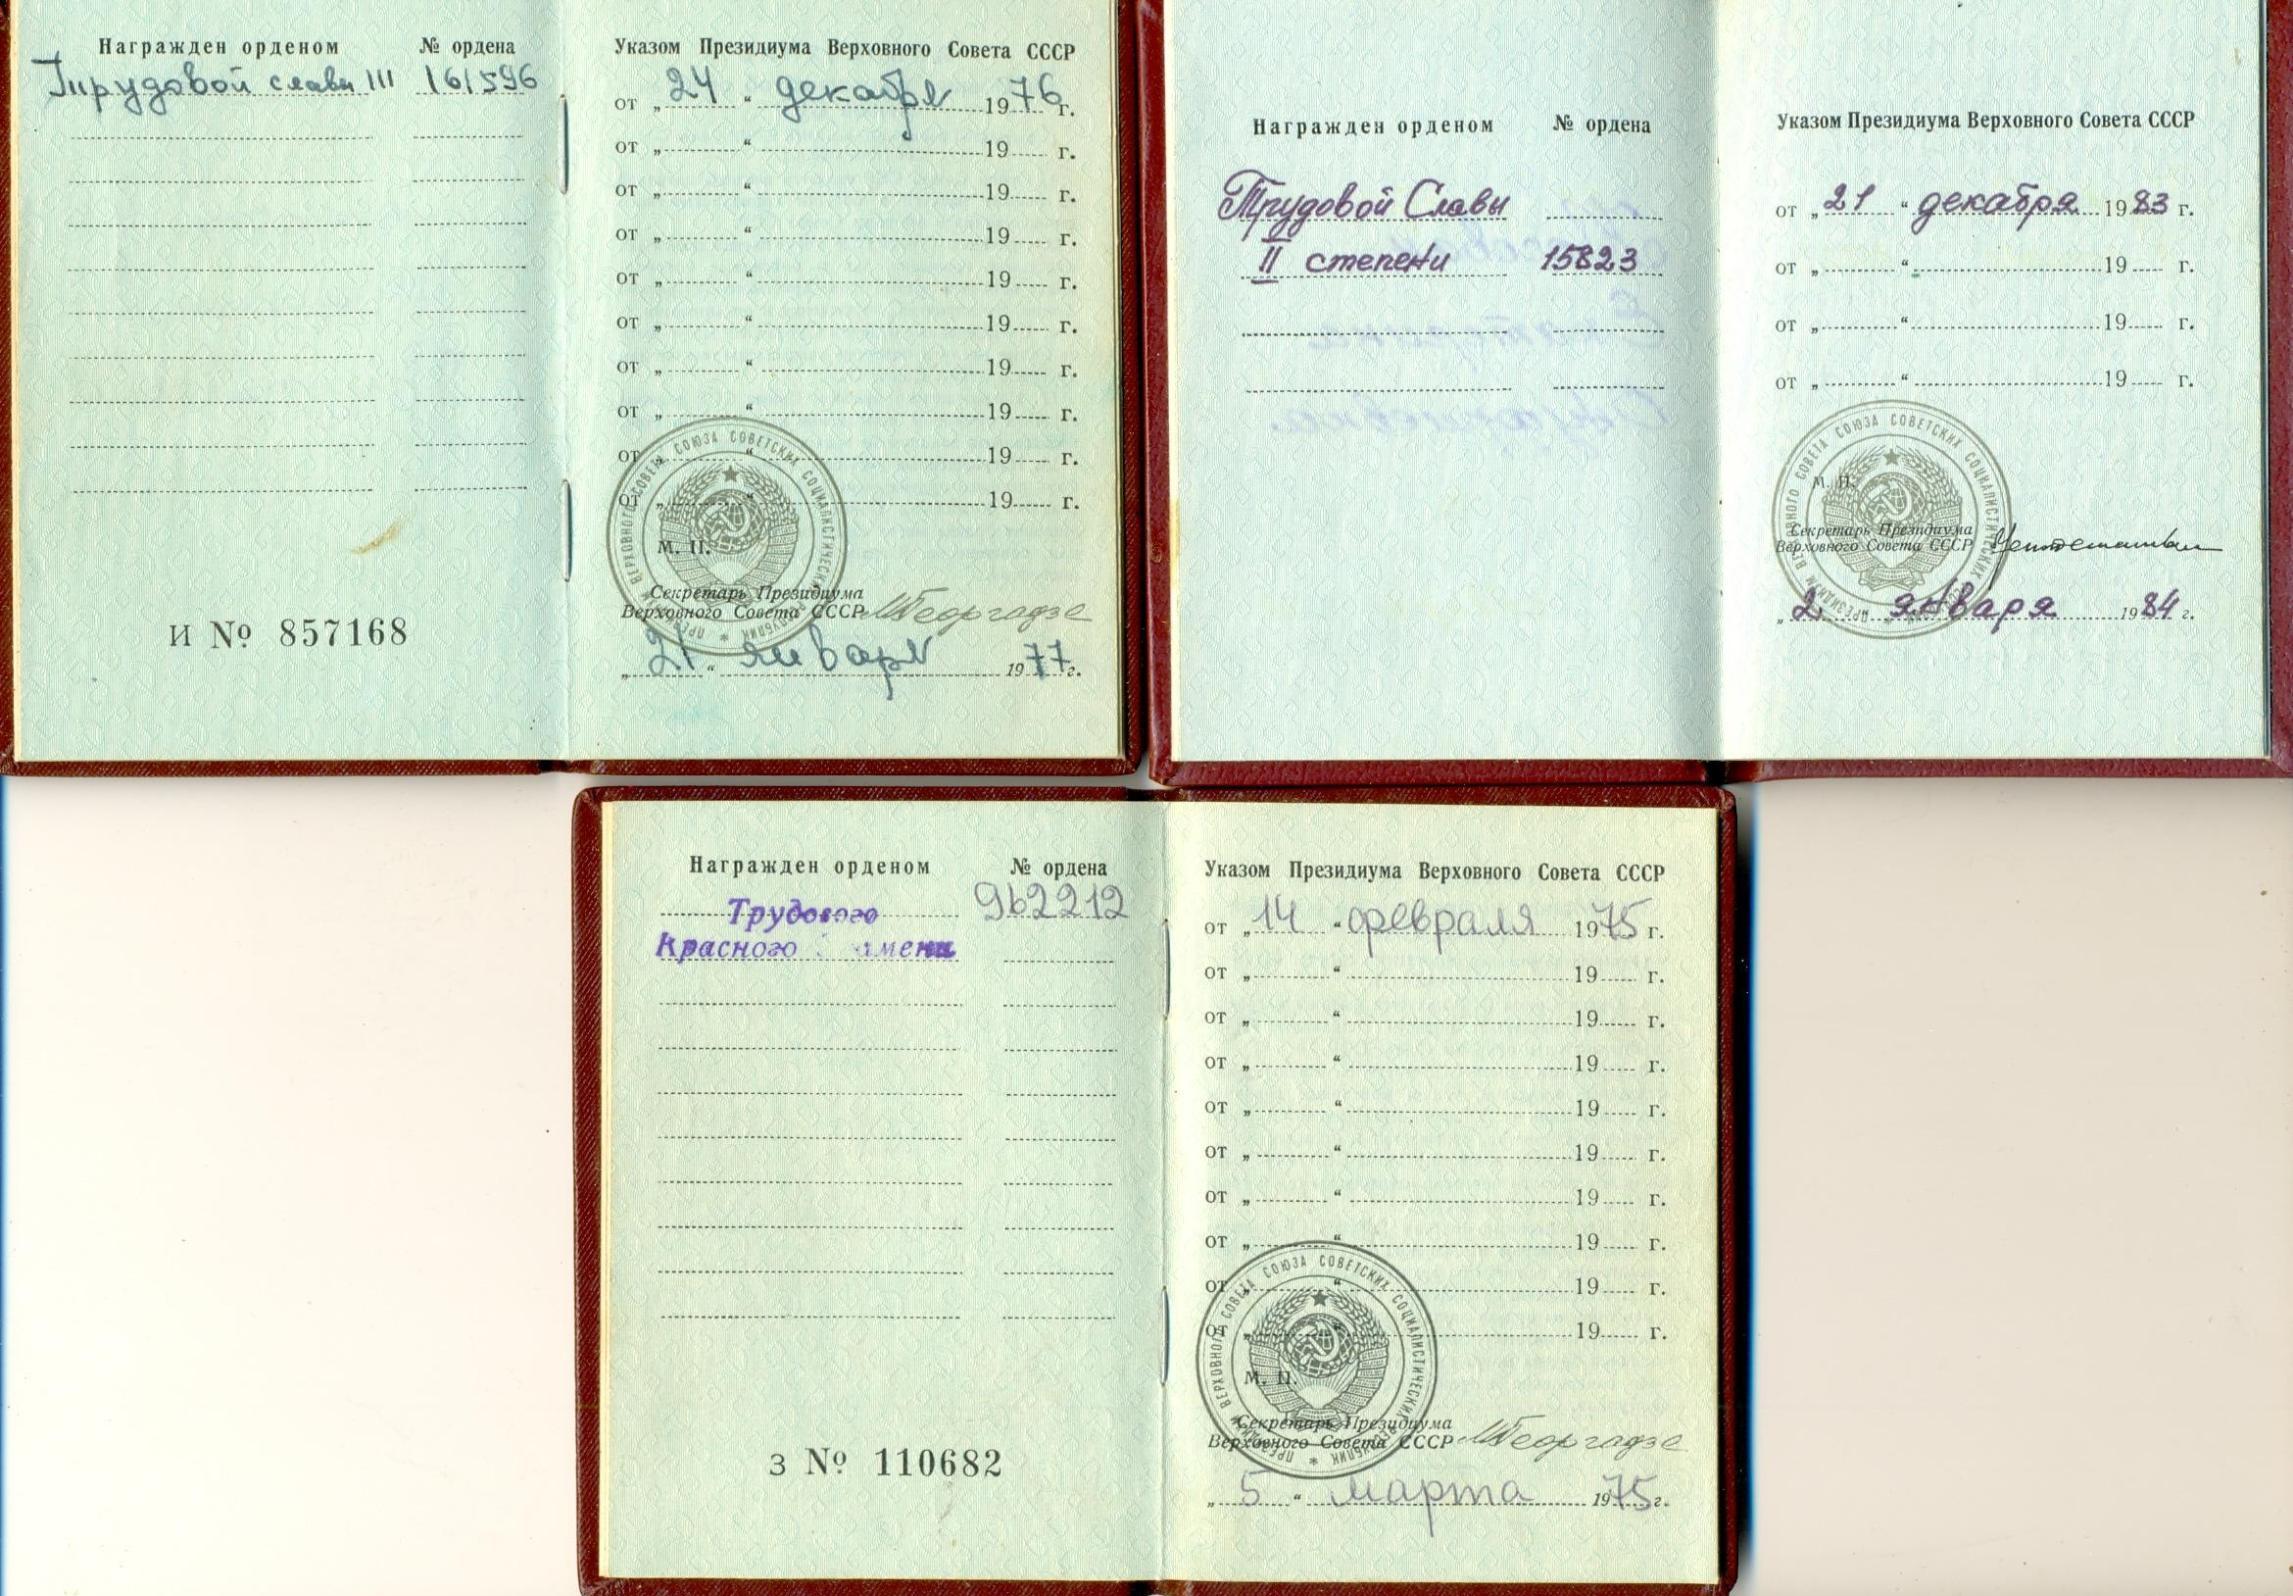 Награжден орденом № ордена
Трудовой славы III 161596
И № 857168
Указом Президиума Верховного Совета СССР
от „ 24 “ декабря 1976 г.
от „ “ 19 г.
от „ “ 19 г.
от „ “ 19 г.
от „ “ 19 г.
от „ “ 19 г.
от „ “ 19 г.
от „ “ 19 г.
от „ “ 19 г.
от „ “ 19 г.
ПРЕЗИДИУМ ВЕРХОВНОГО СОВЕТА СОЮЗА СОВЕТСКИХ СОЦИАЛИСТИЧЕСКИХ РЕСПУБЛИК
М. П.
Секретарь Президиума
Верховного Совета СССР МГеоргадзе
„ 21 “ января 1977 г.
Награжден орденом № ордена
Трудовой Славы
II степени 15823
Указом Президиума Верховного Совета СССР
от „ 21 “ декабря 1983 г.
от „ “ 19 г.
от „ “ 19 г.
от „ “ 19 г.
ПРЕЗИДИУМ ВЕРХОВНОГО СОВЕТА СОЮЗА СОВЕТСКИХ СОЦИАЛИСТИЧЕСКИХ РЕСПУБЛИК
М. П.
Секретарь Президиума
Верховного Совета СССР
„ 2 “ января 1984 г.
Награжден орденом № ордена
Трудового 962212
Красного Знамени
З № 110682
Указом Президиума Верховного Совета СССР
от „ 14 “ февраля 1975 г.
от „ “ 19 г.
от „ “ 19 г.
от „ “ 19 г.
от „ “ 19 г.
от „ “ 19 г.
от „ “ 19 г.
от „ “ 19 г.
от „ “ 19 г.
от „ “ 19 г.
ПРЕЗИДИУМ ВЕРХОВНОГО СОВЕТА СОЮЗА СОВЕТСКИХ СОЦИАЛИСТИЧЕСКИХ РЕСПУБЛИК
М. П.
Секретарь Президиума
Верховного Совета СССР МГеоргадзе
„ 5 “ марта 1975 г.